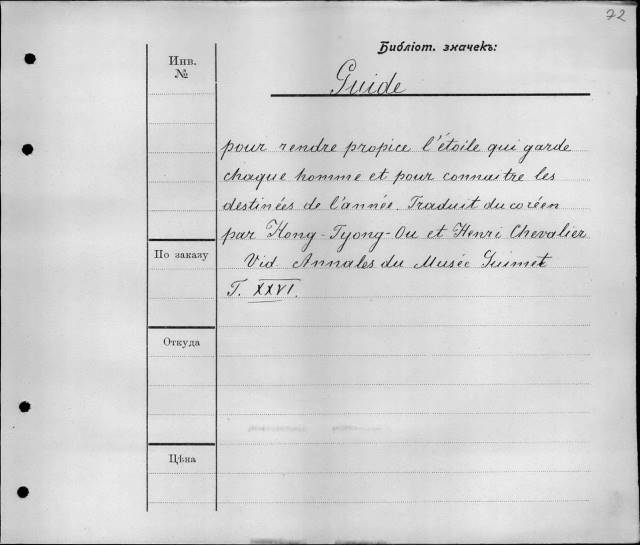 72
Библіот. значекъ:
Инв.
№
Guide
pour rendre propice l'étoile qui garde
chaque homme et pour connaitre les
destinées de l'année. Traduit du coréen
par Hong-Tyong-Ou et Henri Chevalier
По заказу
Vid. Annales du Musée Guimet
T. XXVI.
Откуда
Цѣна